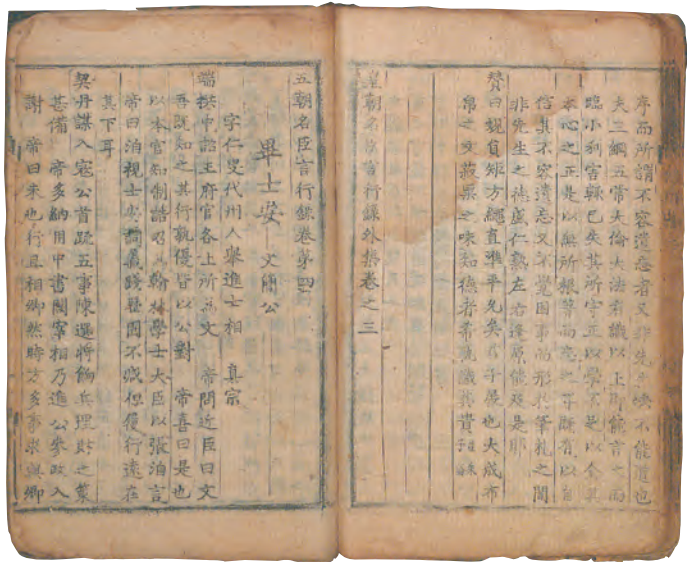 序而所謂不容遺忘者又非先生緒不能道也
夫三綱五常大倫大法有識以上即能言之而
臨小利害輒已失其所守正以學不足以全其
本心之正是以無所根等而
信其不容遺忘又不覺因事而形於筆札之間
非先生之德盛仁熟左右逢原能及是耶
贊曰規負矩方繩直準平允矣君子展也大成布
帛之文菽粟之味知德者希孰識其貴
皇朝名臣言行錄外集卷之三
五朝名臣言行錄卷第四
畢士安 文簡公
字仁叟代州人舉進士相 真宗
端拱中詔王府官各上所為文 帝問近臣曰文
吾既知之其行孰優皆以公對 帝喜曰是也
以本官知制誥召為翰林學士大臣以張洎言
帝曰洎視士安詞藝踐歷固不減但履行遠在
其下耳
契丹謀入寇公首疏五事陳選將餉兵理財之策
甚備 帝多納用中書闕宰相乃進公參政入
謝 帝曰未也行且相卿然時方多事求與卿